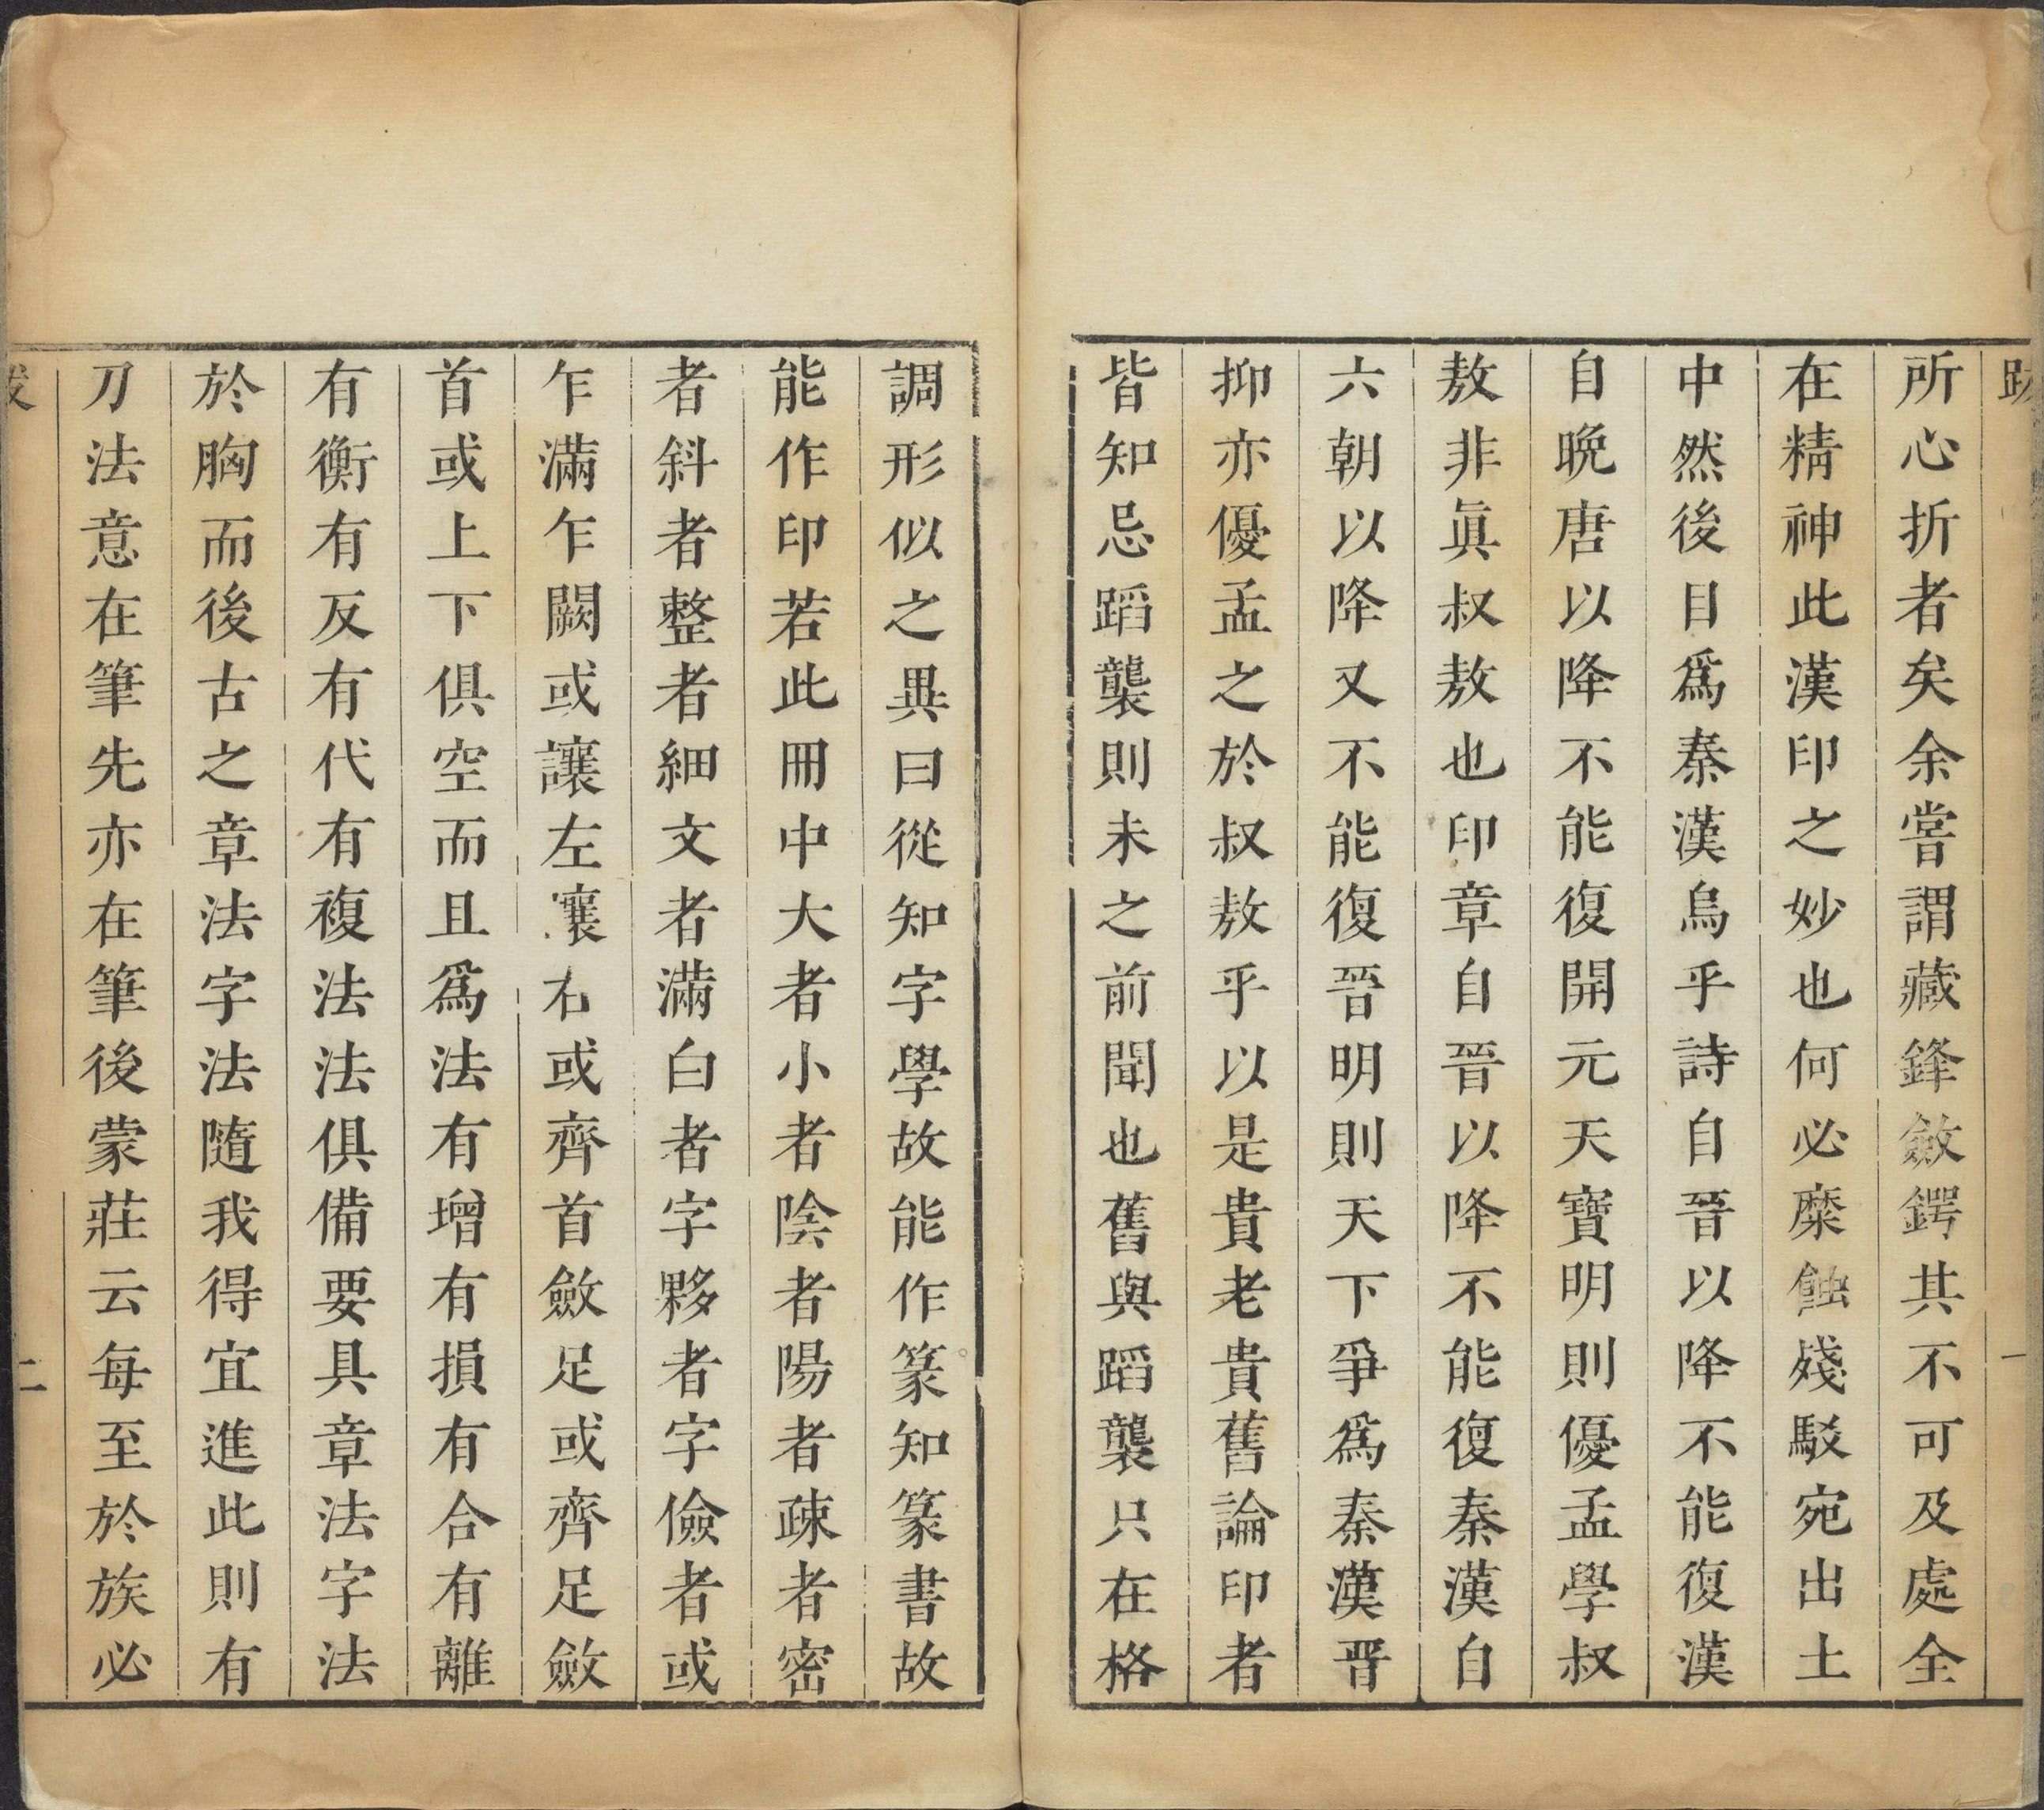 跋
一
所心折者矣余嘗謂藏鋒斂鍔其不可及處全
在精神此漢印之妙也何必糜蝕殘駁宛出土
中然後目爲秦漢烏乎詩自晉以降不能復漢
自晩唐以降不能復開元天寶明則優孟學叔
敖非眞叔敖也印章自晉以降不能復秦漢自
六朝以降又不能復晉明則天下爭爲秦漢晉
抑亦優孟之於叔敖乎以是貴老貴舊論印者
皆知忌蹈襲則未之前聞也舊與蹈襲只在格
調形似之異曰從知字學故能作篆知篆書故
能作印若此冊中大者小者陰者陽者疎者密
者斜者整者細文者滿白者字夥者字儉者或
乍滿乍闕或讓左讓右或齊首斂足或齊足斂
首或上下俱空而且爲法有增有損有合有離
有衡有反有代有複法法俱備要具章法字法
於胸而後古之章法字法隨我得宜進此則有
刀法意在筆先亦在筆後蒙莊云每至於族必
跋
二